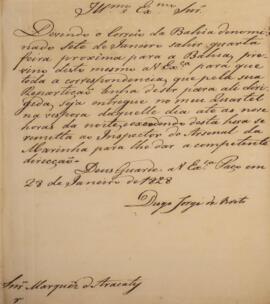 Illmo e Exmo Snr.
Devendo o Correio da Bahia denomi
nado Sete de Janeiro sahir quarta
feira proxima para a Bahia, pre
vino deste mesmo a V Exa para que
toda a correspondencia, que pela sua
Repartição tenha deste para ali diri
gida, seja entregue no meu Quartel
na vespera daquelle dia até as nove
horas da noite, excedendo desta hora se
remetta ao Inspector do Arsenal da
Marinha para lhe dar a competente
direcção.
Deus Guarde a V Exa Paço em
28 de Janeiro de 1828
Diogo Jorge de Brito
Snr Marquez d'Aracaty